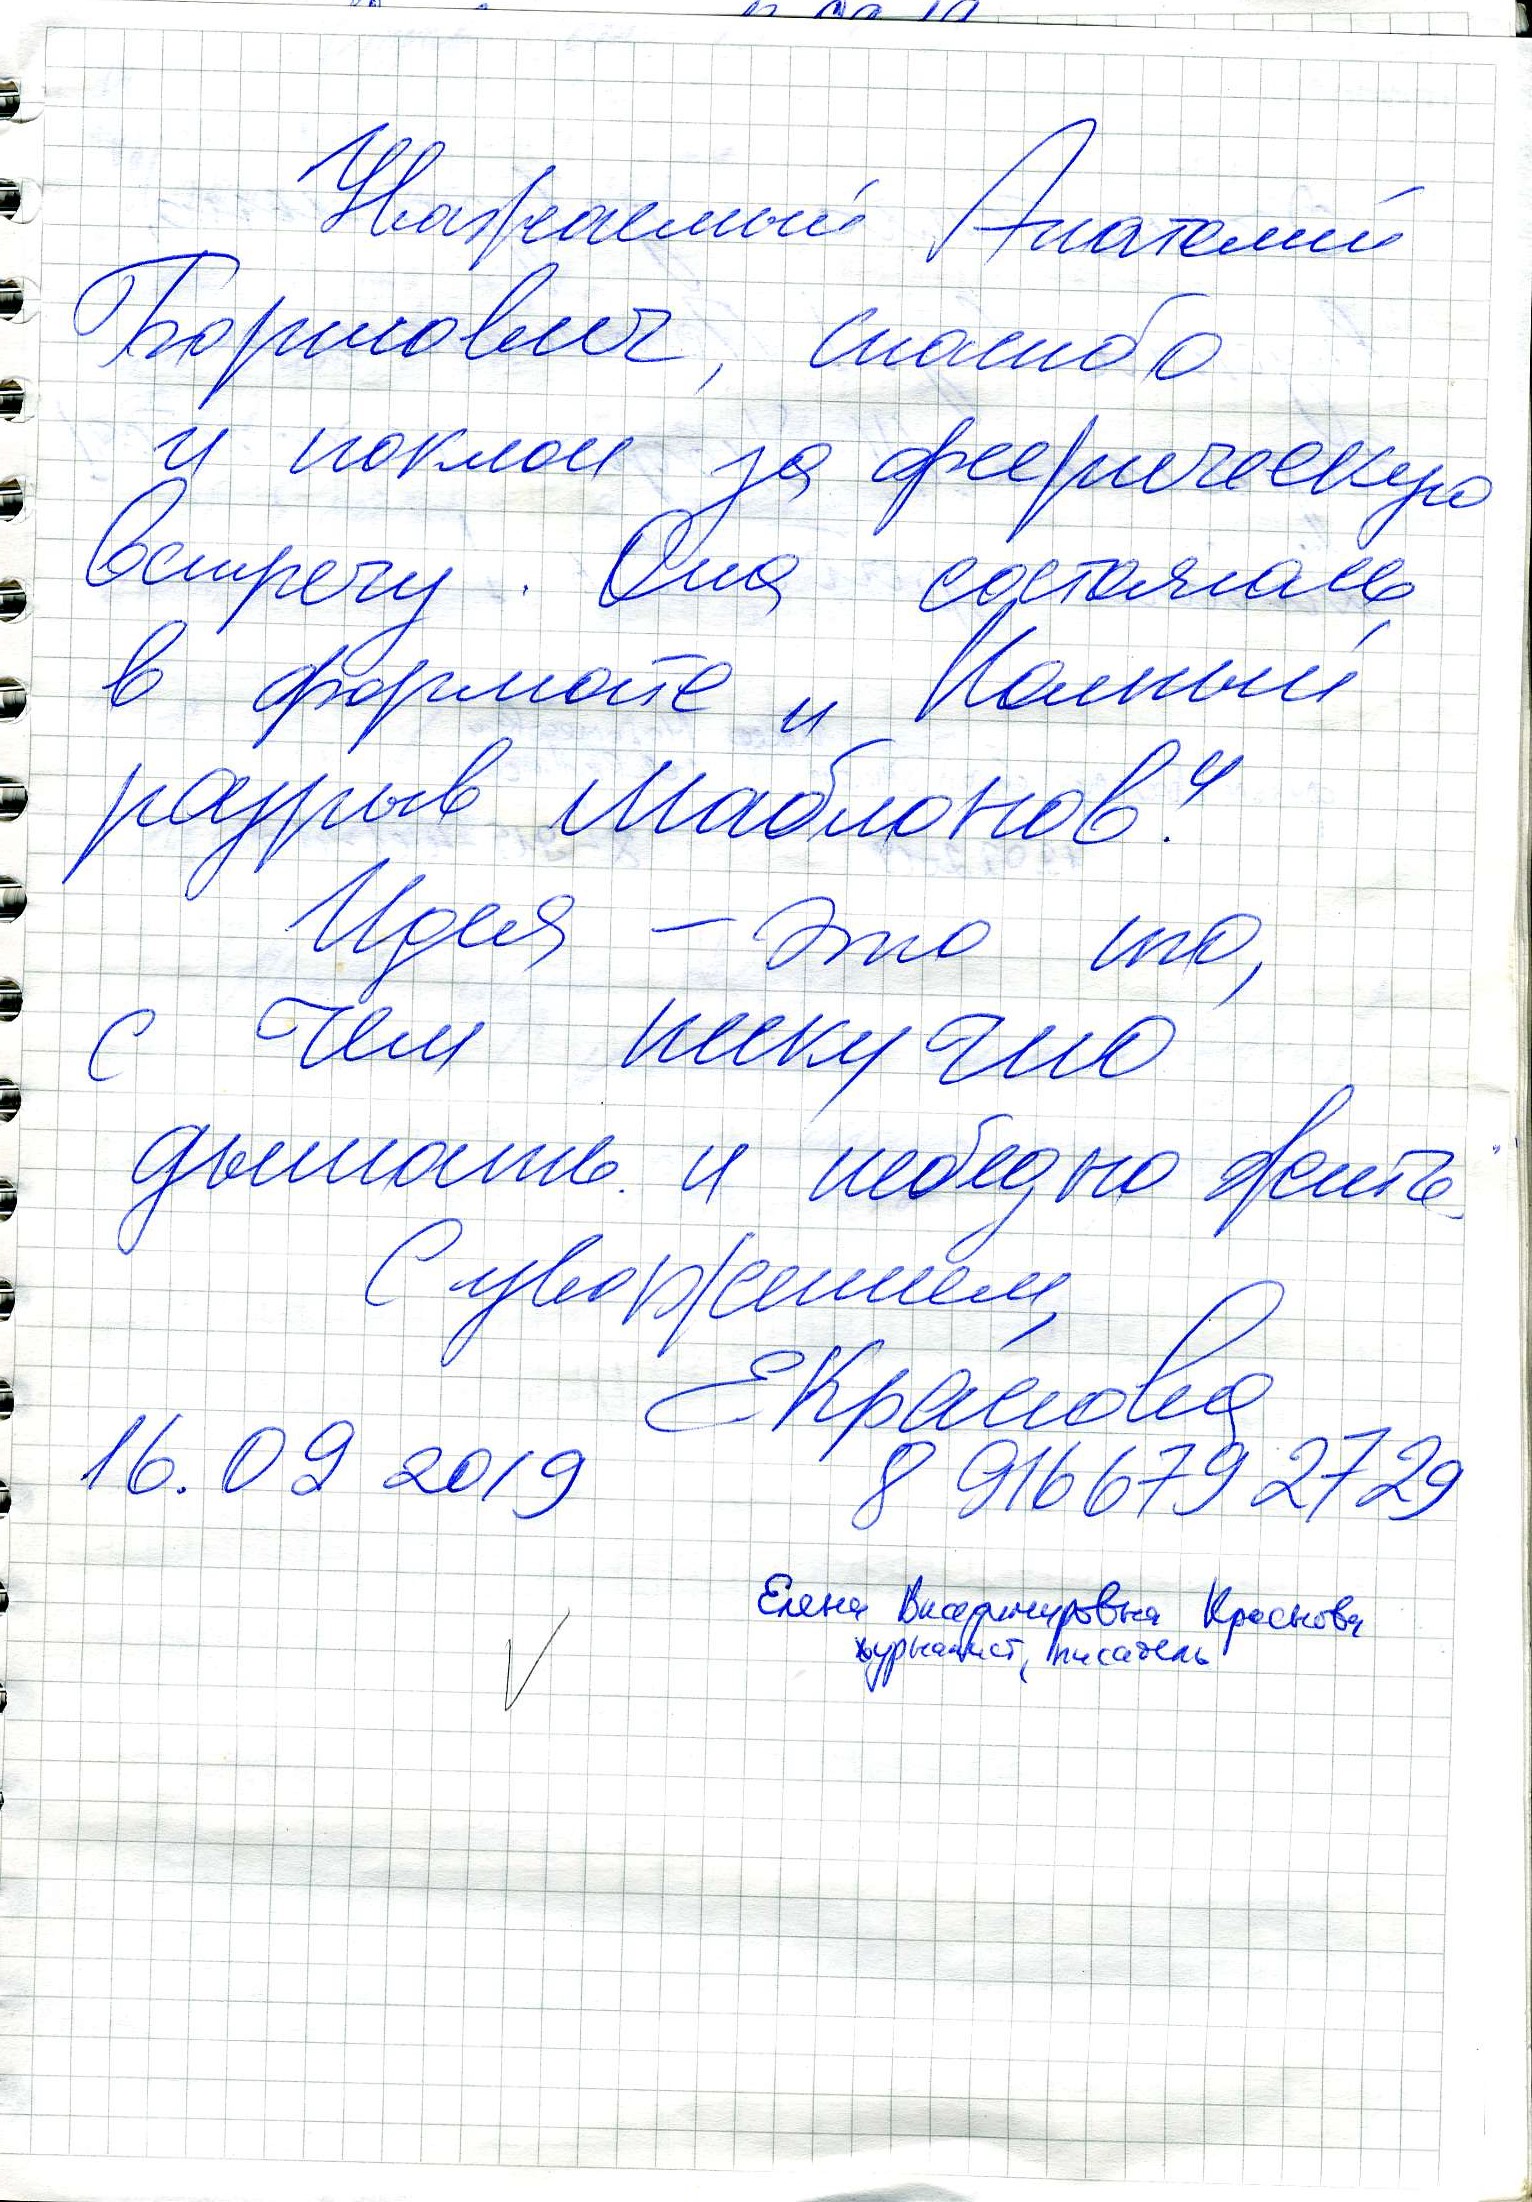 Уважаемый Анатолий
Борисович, спасибо
и поклон за феерическую
встречу. Она состоялась
в формате „Полный
разрыв шаблонов!“
Идея – это то,
с чем нескучно
дышать и небедно жить.
С уважением,
ЕКраснова
16.09 2019 8 916 679 2729
Елена Владимировна Краснова
журналист, писатель